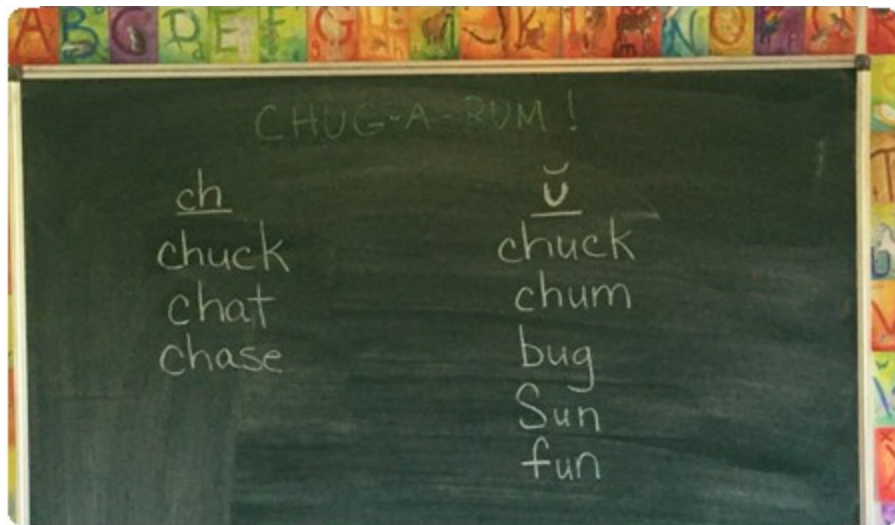 A B C D E F G h I J K L M N O P
CHUG-A-RUM!
ch
chuck
chat
chase
ŭ
chuck
chum
bug
Sun
fun